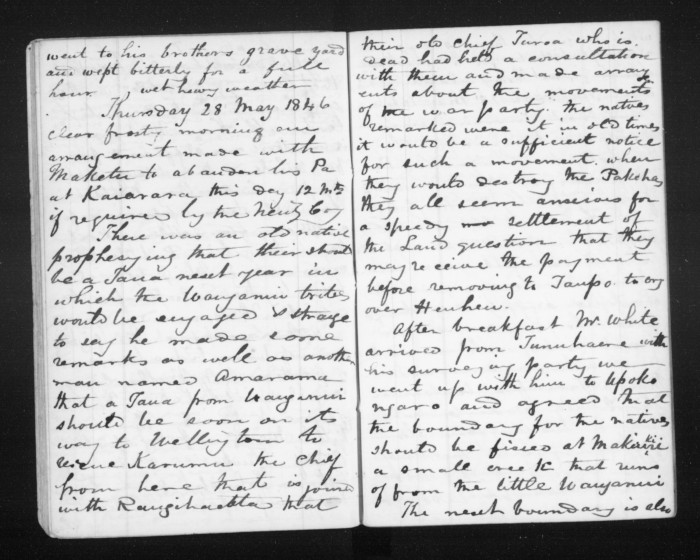 went to his brothers grave yard
and wept bitterly for a full
hour wet heavy weather
Thursday 28 May 1846
clear frosty morning an
arrangement made with
Maketu to abandon his Pa
at Kaiarara this day 12 Mths
if required by the New Z Coy
There was an old native
prophesying that their should
be a Taua next year in
which the Wanganui tribes
would be engaged & strange
to say he made some
remarks as well as another
man named Amarama
that a Taua from Wanganui
should be soon on its
way to Wellington to
rescue Karumu the chief
from here that is joined
with Rangihaetta that
their old chief Turoa who is
dead had held a consultation
with them and made arrang
ents about the movements
of the war party. the natives
remarked were it in old times
it would be a sufficient notice
for such a movement when
they would destroy the Pakehas
they all seem anxious for
a speedy settlement of
the Land question that they
may receive the payment
before removing to Taupo to cry
over Heuheu.
After breakfast Mr White
arrived from Tunuhaere with
his surveying party we
went up with him to Upoko
ngaro and agreed that
the boundary for the natives
should be fixed at Makirikiri
a small creek that runs
of from the little Wanganui
The next boundary is also